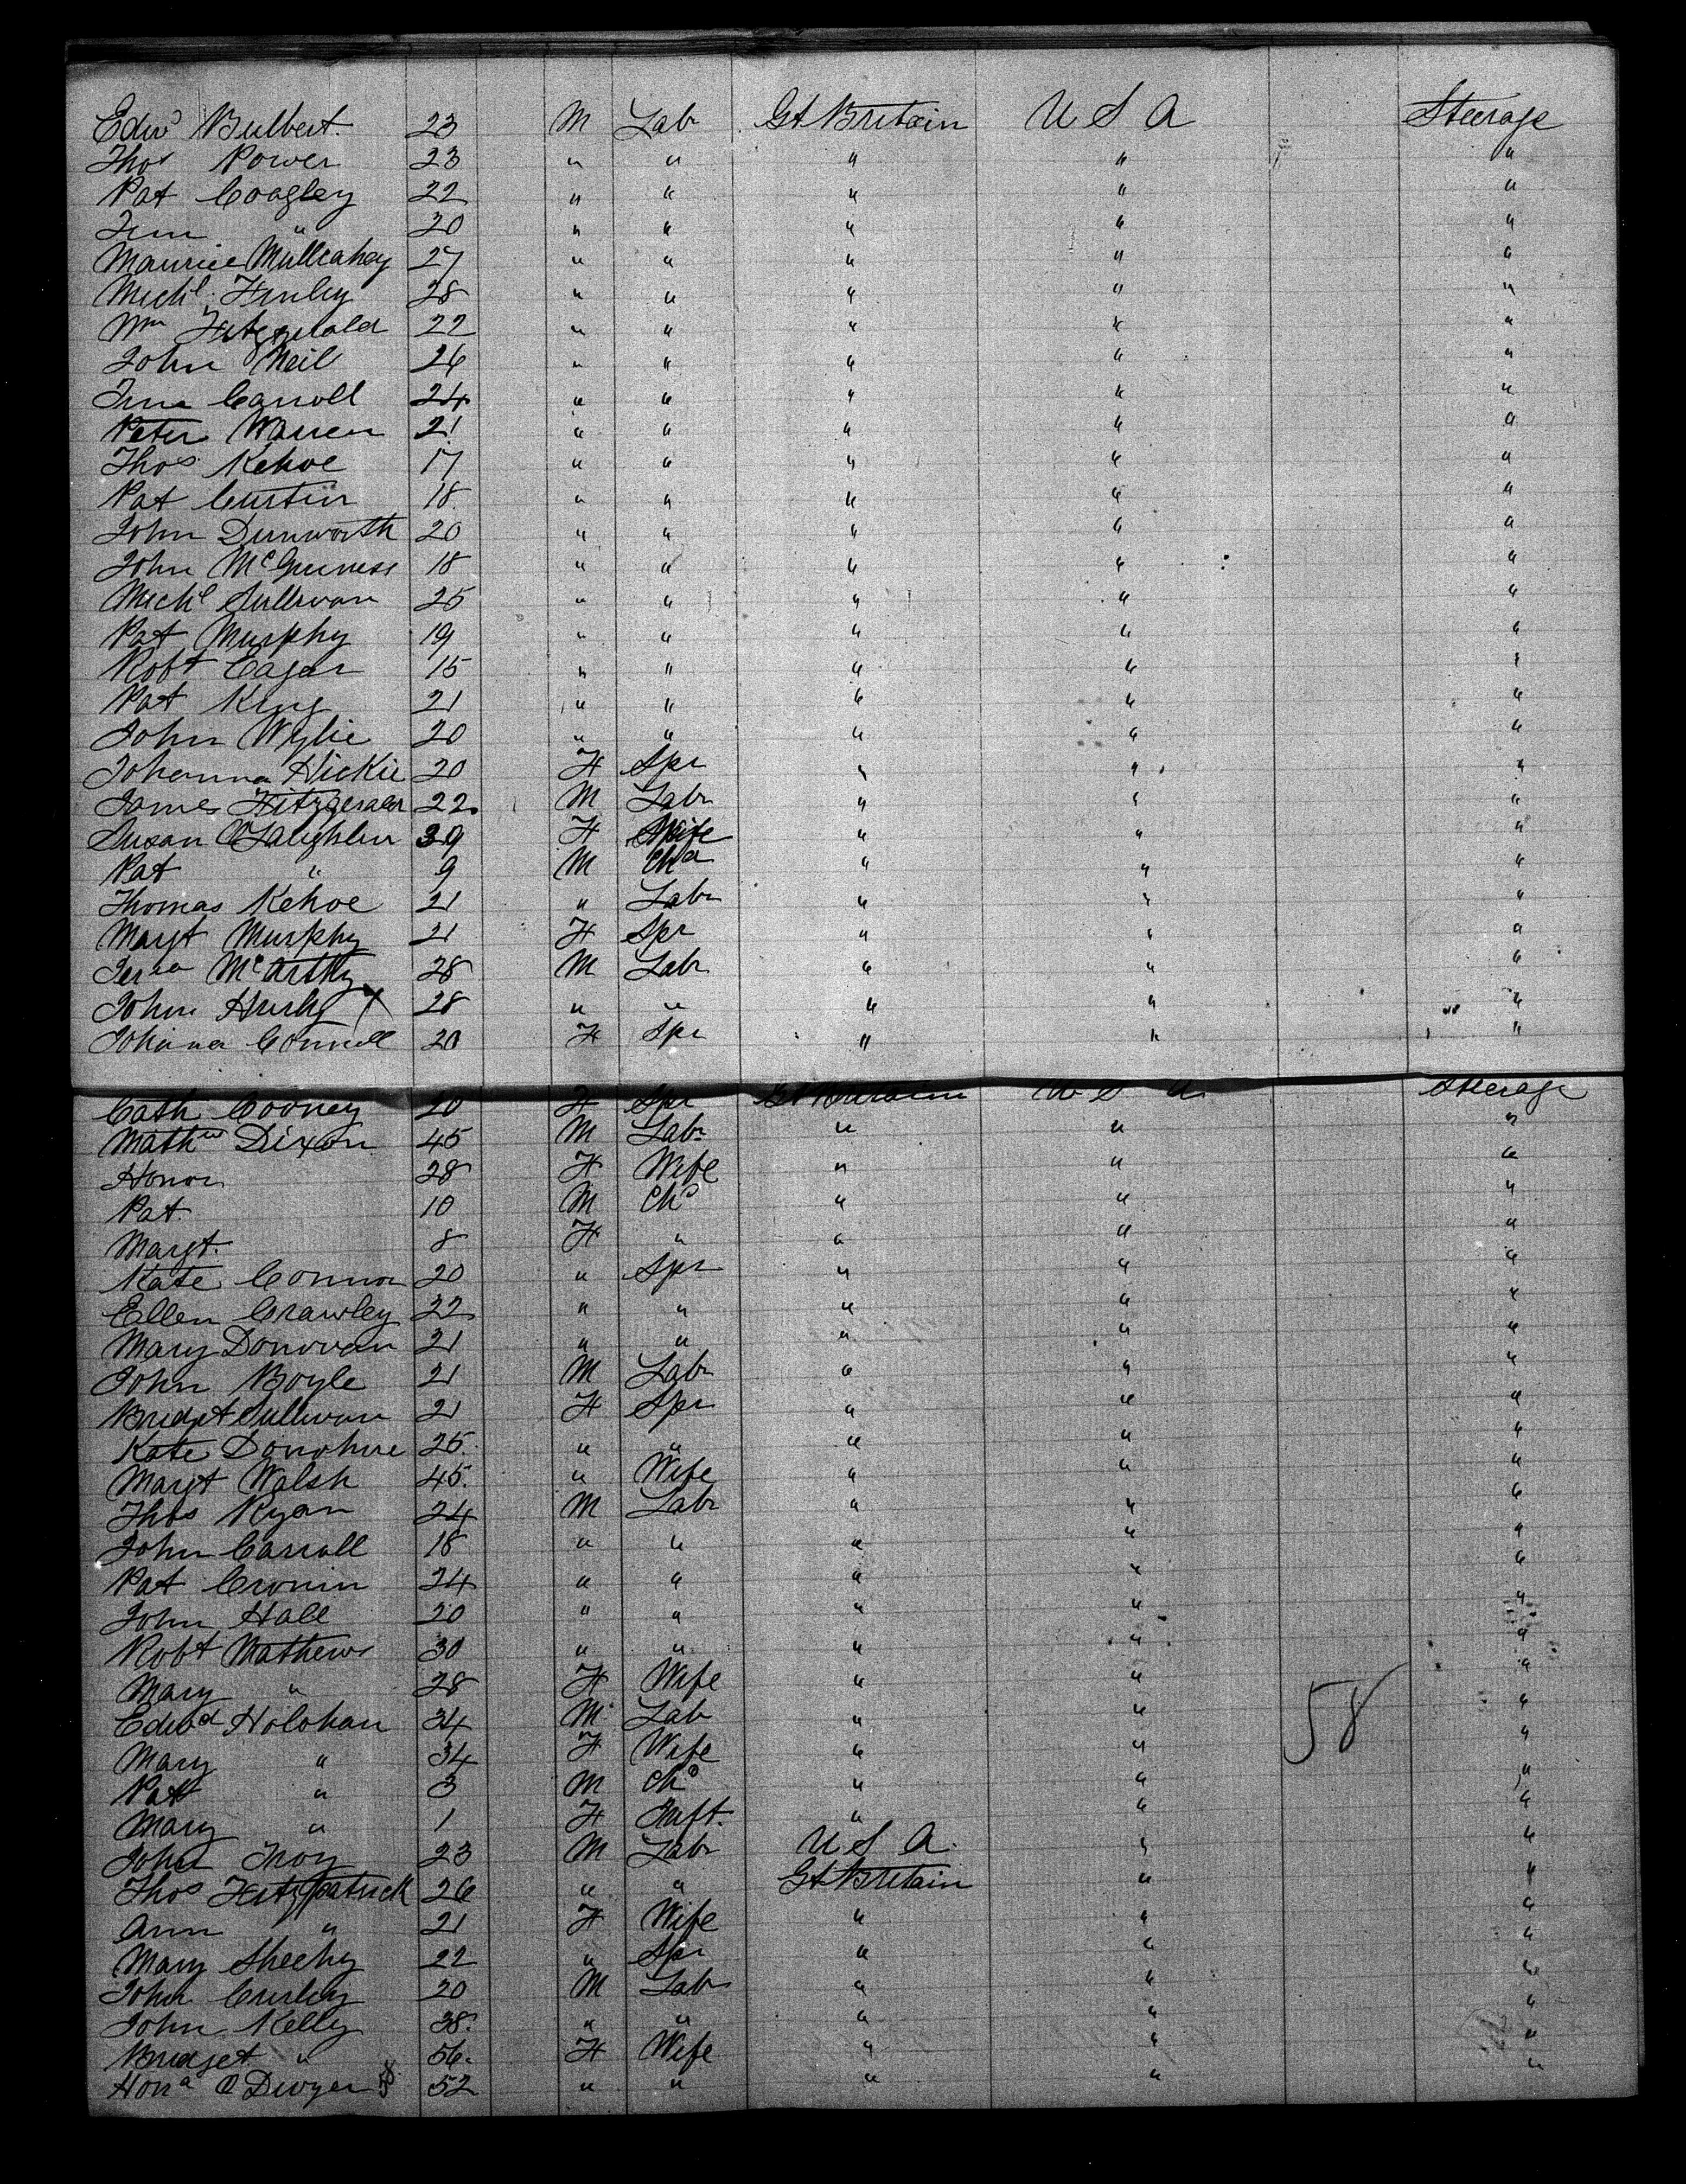 Edwd Bulbert. 23 M Lab Gt Britain U S A Steerage
Thos Power 23 " " " " "
Pat Coagley 22 " " " " "
" 20 " " " " "
Maurice Mullcahey 27 " " " " "
Michl Finley 28 " " " " "
Wm Fitzgerald 22 " " " " "
John Neil 26 " " " " "
Carroll 24 " " " " "
Peter Warren 21 " " " " "
Thos Kehoe 17 " " " " "
Pat Curtin 18 " " " " "
John Dunworth 20 " " " " "
John McGuiness 18 " " " " "
Michl Sullivan 25 " " " " "
Pat Murphy 19 " " " " "
Robt Eagar 15 " " " " "
Pat King 21 " " " " "
John Wylie 20 " " " " "
Johanna Hickie 20 F Spr " " "
James Fitzgerald 22 M Labr " " "
Susan O'Laughlin 39 F Wife " " "
Pat " 9 M Chd " " "
Thomas Kehoe 21 " Labr " " "
Margt Murphy 21 F Spr " " "
McArthy 28 M Labr " " "
John X 28 " " " " "
Johana Connell 20 F Spr " " "
Cath Cooney 20 F Spr Gt Britain U S A Steerage
Mathw Dixon 45 M Labr " " "
Honor 28 F Wife " " "
Pat. 10 M Chd " " "
Margt. 8 F " " " "
Kate Connor 20 " Spr " " "
Ellen Crawley 22 " " " " "
Mary Donovan 21 " " " " "
John Boyle 21 M Labr " " "
Bridgt Sullivan 21 F Spr " " "
Kate Donohue 25. " " " " "
Margt Walsh 45. " Wife " " "
Thos Ryan 24 M Labr " " "
John Carroll 18 " " " " "
Pat Cronin 24 " " " " "
John Hall 20 " " " " "
Robt Mathews 30 " " " " "
Mary " 28 F Wife " " "
Edwd Holohan 34 M Lab " " 58 "
Mary " 34 F Wife " " "
Pat " 3 M Chd " " "
Mary " 1 F Inft. " " "
John Troy 23 M Labr U S A. " "
Thos Fitzpatrick 26 " " Gt Britain " "
Ann " 21 F Wife " " "
Mary Sheehy 22 " Spr " " "
John Curley 20 M Labr " " "
John Kelly 38. " " " " "
Bridget " 56. F Wife " " "
Hona O Dwyer 58 52 " " " " "